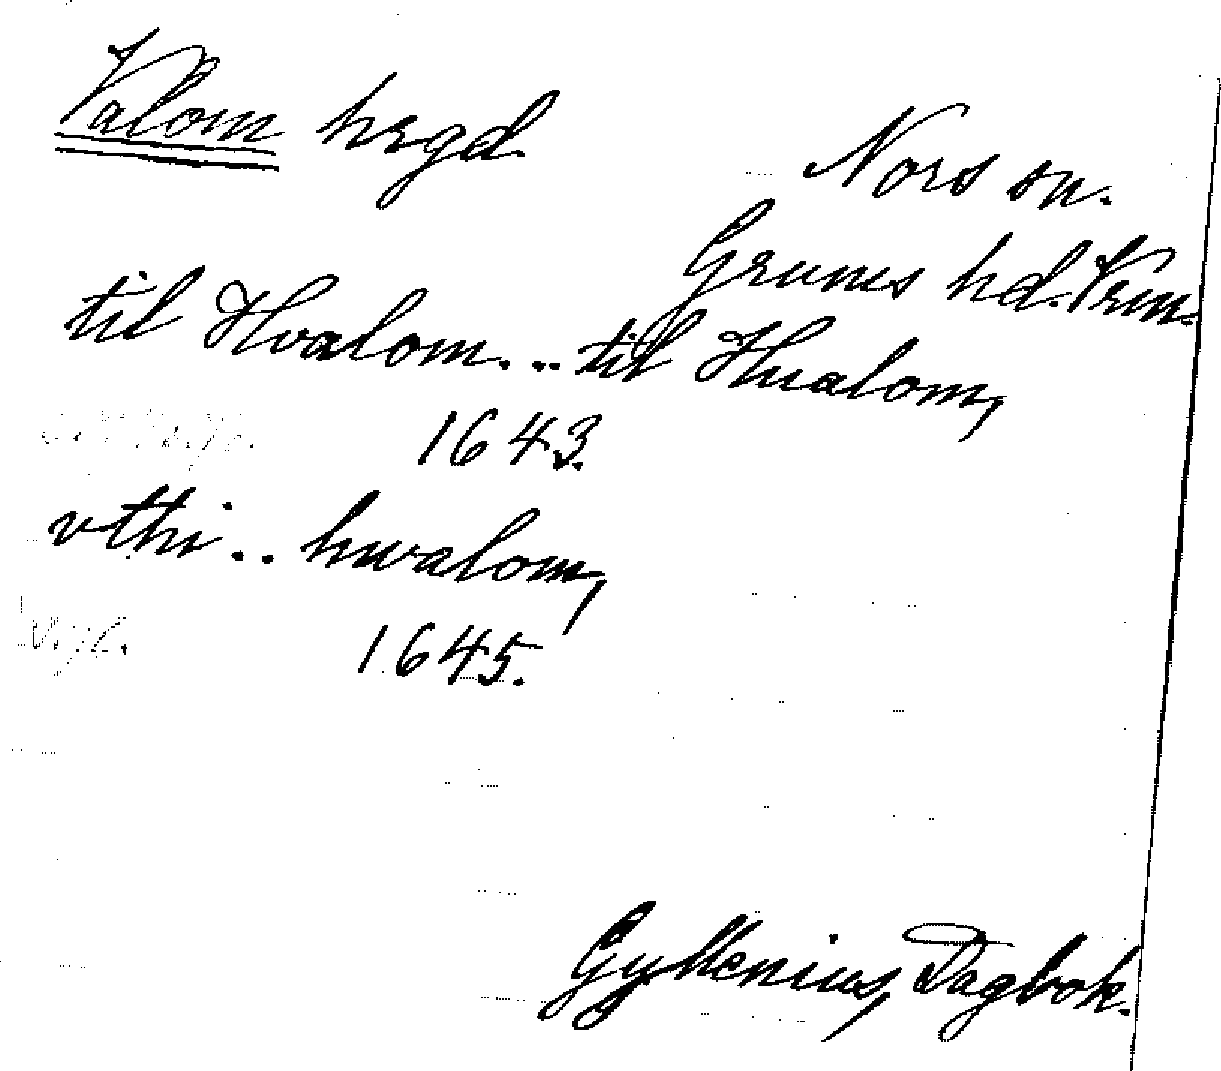 Valom hrgd.
Nors sn.
Grums hd. Vrm.
til Hvalom... til Hualom,
1643.
vthi.. hwalom,
1645.
Gyllenius, Dagbok.